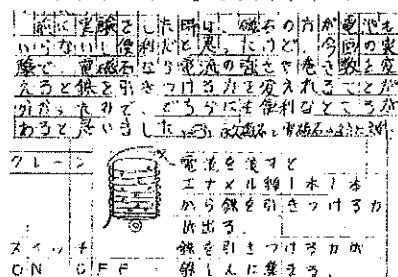 前に実験をした時は、磁石の方が電池も
いらないし便利だと思ったけど、今回の実
験で、電磁石なら電流の強さや巻き数を変
えると鉄を引きつける力を変えれることが
分かったので、どちらにも便利なところが
あると思いました。
クレーン
電流を流すと
エナメル線1本1本
から鉄を引きつける力
が出る。
スイッチ
ON OFF
鉄を引きつける力が
鉄しんに集まる。